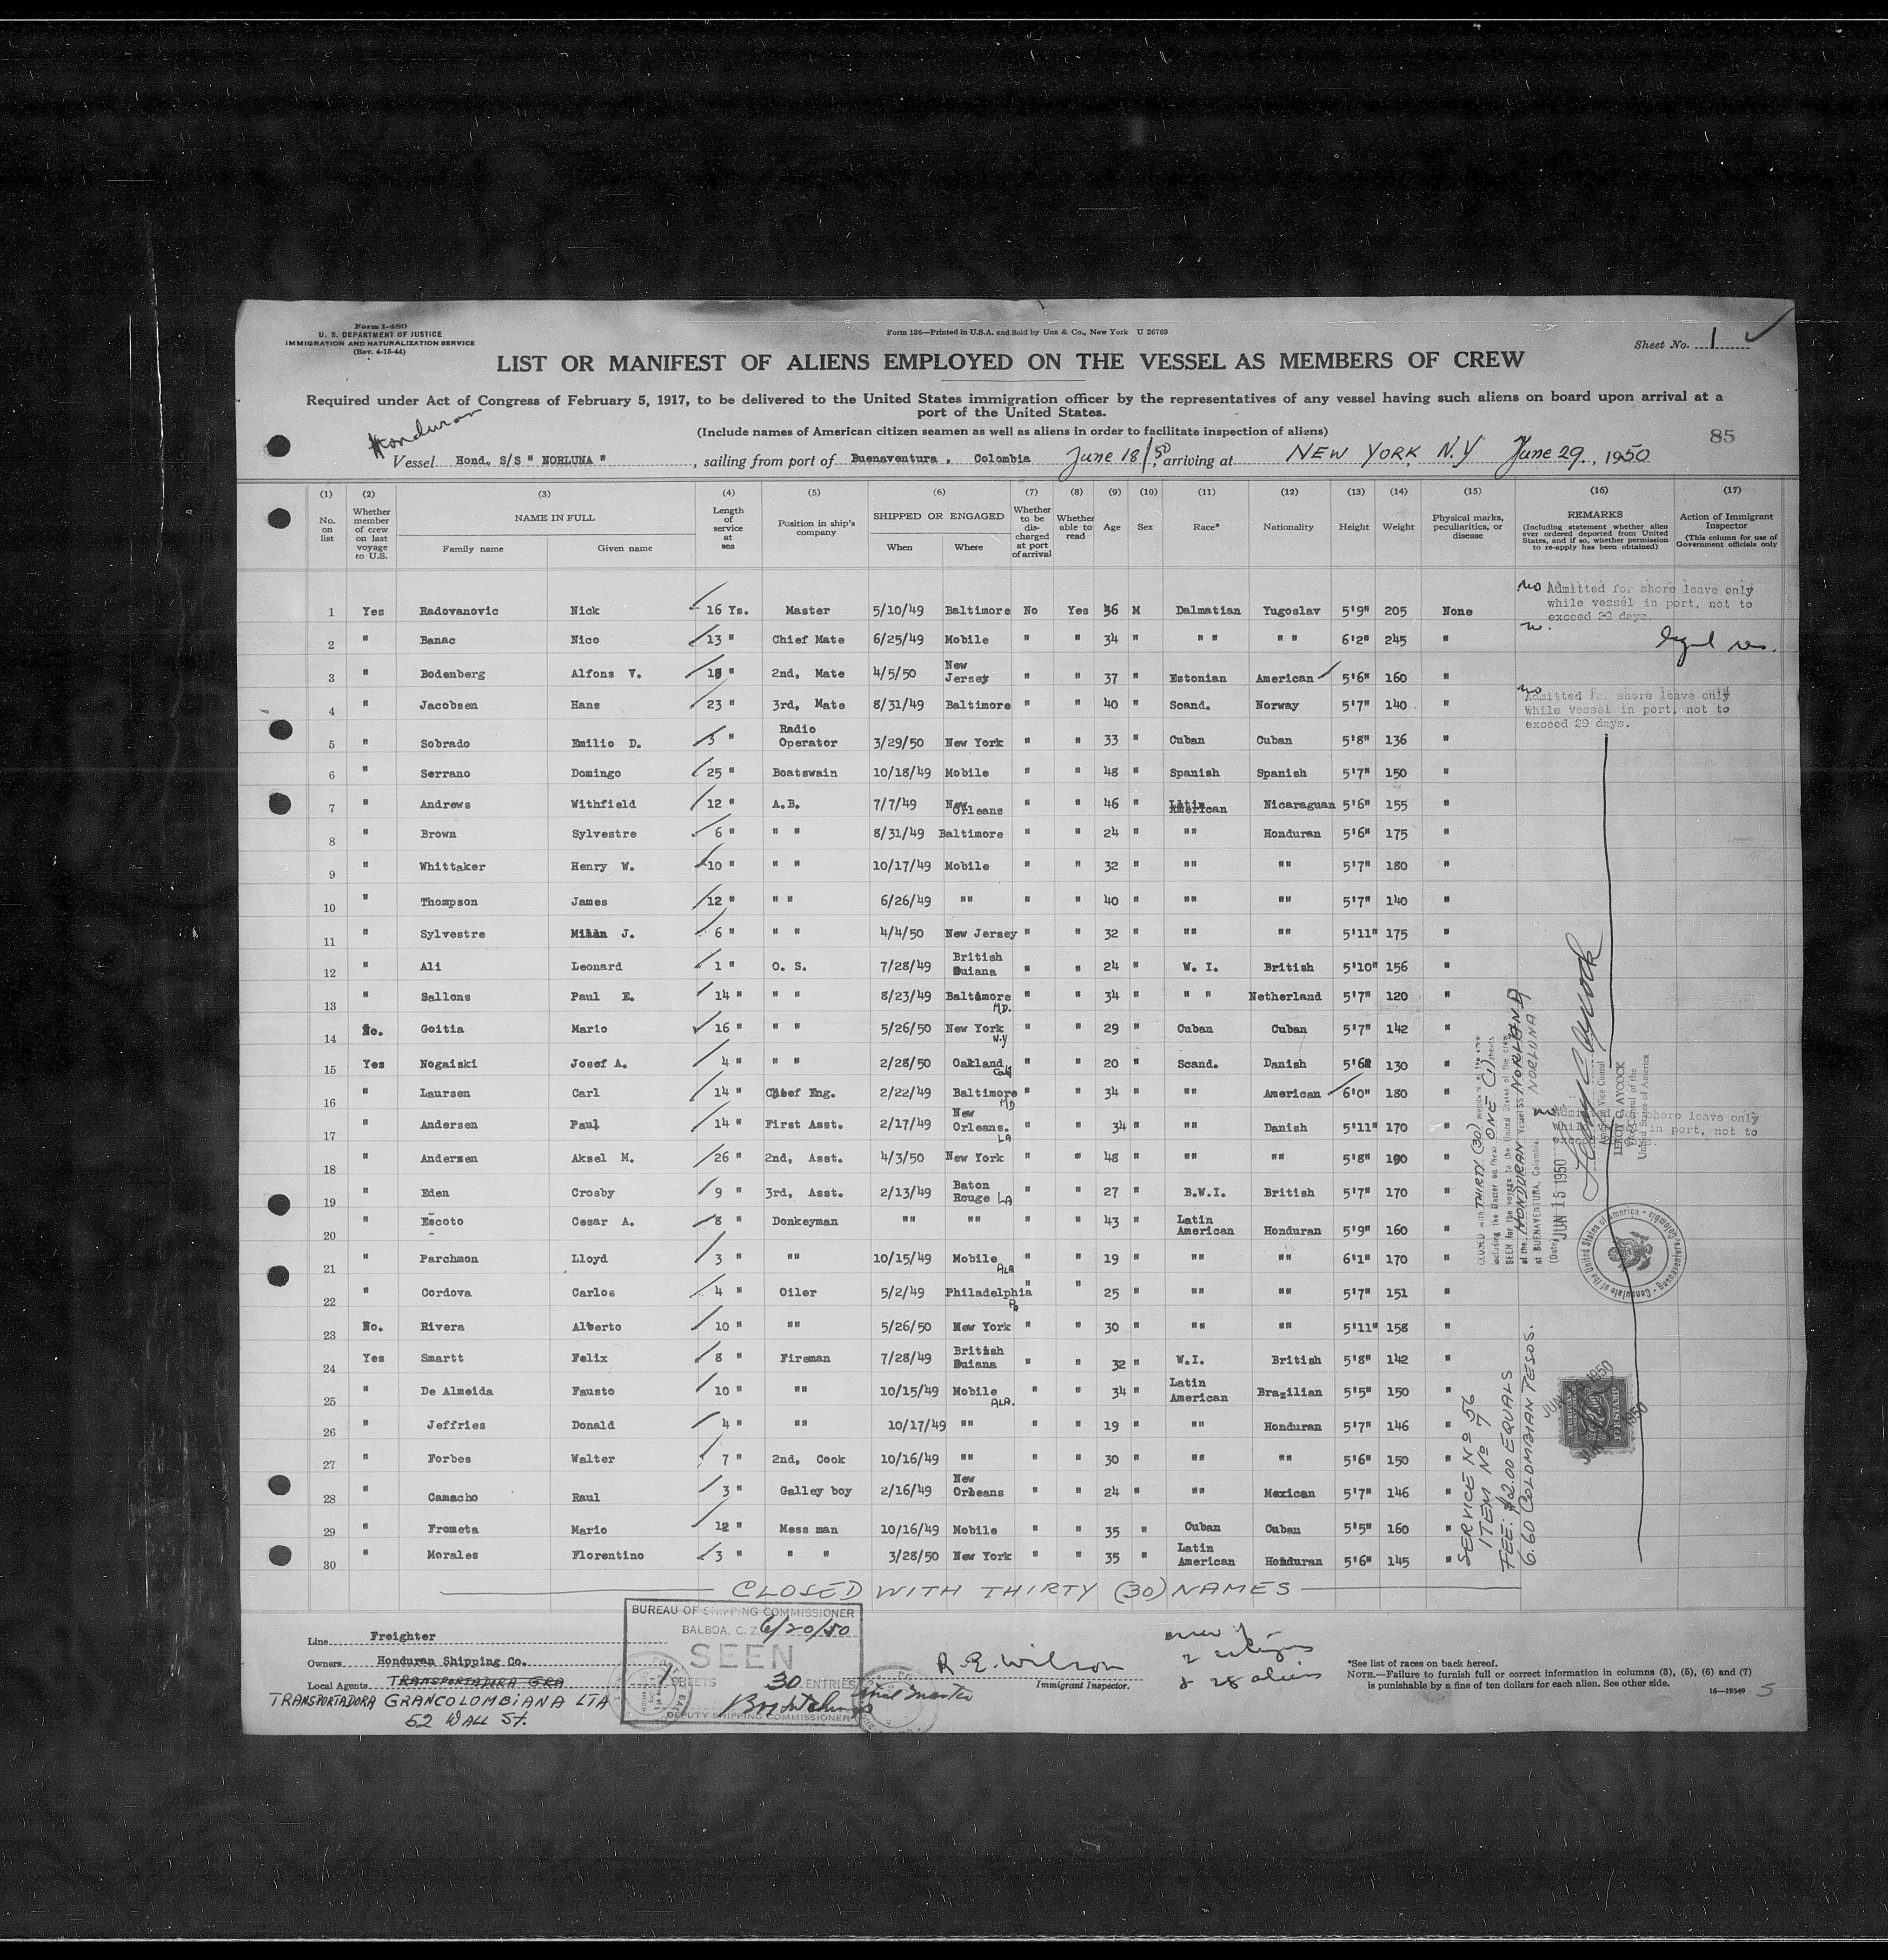 Form I-480
U. S. DEPARTMENT OF JUSTICE
IMMIGRATION AND NATURALIZATION SERVICE
(Rev. 4-15-44)
Form 136—Printed in U.S.A. and Sold by Unz & Co., New York U 26769
Sheet No. 1
LIST OR MANIFEST OF ALIENS EMPLOYED ON THE VESSEL AS MEMBERS OF CREW
Required under Act of Congress of February 5, 1917, to be delivered to the United States immigration officer by the representatives of any vessel having such aliens on board upon arrival at a
port of the United States.
(Include names of American citizen seamen as well as aliens in order to facilitate inspection of aliens)
85
Honduran
Vessel Hond. S/S " NORLUNA " , sailing from port of Buenaventura , Colombia June 18/50, arriving at NEW YORK, N.Y June 29., 1950
(1) (2) (3) (4) (5) (6) (7) (8) (9) (10) (11) (12) (13) (14) (15) (16) (17)
No. on list
Whether member of crew on last voyage to U.S.
NAME IN FULL
Family name Given name
Length of service at sea
Position in ship's company
SHIPPED OR ENGAGED
When Where
Whether to be discharged at port of arrival
Whether able to read
Age
Sex
Race*
Nationality
Height
Weight
Physical marks, peculiarities, or disease
REMARKS
(Including statement whether alien ever ordered deported from United States, and if so, whether permission to re-apply has been obtained)
Action of Immigrant Inspector
(This column for use of Government officials only
no Admitted for shore leave only
while vessel in port, not to
exceed 29 days.
1 Yes Radovanovic Nick 16 Ys. Master 5/10/49 Baltimore No Yes 36 M Dalmatian Yugoslav 5'9" 205 None
2 " Banac Nico 13 " Chief Mate 6/25/49 Mobile " " 34 " " " " " 6'2" 245 "
3 " Bodenberg Alfons V. 18 " 2nd, Mate 4/5/50 New Jersey " " 37 " Estonian American 5'6" 160 "
4 " Jacobsen Hans 23 " 3rd, Mate 8/31/49 Baltimore " " 40 " Scand. Norway 5'7" 140 "
no Admitted for shore leave only
while vessel in port, not to
exceed 29 days.
5 " Sobrado Emilio D. 3 " Radio Operator 3/29/50 New York " " 33 " Cuban Cuban 5'8" 136 "
6 " Serrano Domingo 25 " Boatswain 10/18/49 Mobile " " 48 " Spanish Spanish 5'7" 150 "
7 " Andrews Withfield 12 " A.B. 7/7/49 New Orleans " " 46 " Latin American Nicaraguan 5'6" 155 "
8 " Brown Sylvestre 6 " " " 8/31/49 Baltimore " " 24 " "" Honduran 5'6" 175 "
9 " Whittaker Henry W. 10 " " " 10/17/49 Mobile " " 32 " "" "" 5'7" 180 "
10 " Thompson James 12 " " " 6/26/49 "" " " 40 " "" "" 5'7" 140 "
11 " Sylvestre J. 6 " " " 4/4/50 New Jersey " " 32 " "" "" 5'11" 175 "
12 " Ali Leonard 1 " O. S. 7/28/49 British Guiana " " 24 " W. I. British 5'10" 156 "
13 " Sallons Paul E. 14 " " " 8/23/49 Baltimore MD. " " 34 " " " Netherland 5'7" 120 "
14 No. Goitia Mario 16 " " " 5/26/50 New York N.Y " " 29 " Cuban Cuban 5'7" 142 "
15 Yes Nogaiski Josef A. 4 " " " 2/28/50 Oakland Calif " " 20 " Scand. Danish 5'6" 130 "
16 " Laursen Carl 14 " Chief Eng. 2/22/49 Baltimore MD " " 34 " "" American 6'0" 180 "
17 " Andersen Paul 14 " First Asst. 2/17/49 New Orleans. LA " " 34 " "" Danish 5'11" 170 "
18 " Andersen Aksel M. 26 " 2nd, Asst. 4/3/50 New York " " 48 " "" "" 5'8" 190 "
19 " Eden Crosby 9 " 3rd, Asst. 2/13/49 Baton Rouge LA " " 27 " B.W.I. British 5'7" 170 "
20 " Escoto Cesar A. 8 " Donkeyman "" "" " " 43 " Latin American Honduran 5'9" 160 "
21 " Parchmon Lloyd 3 " "" 10/15/49 Mobile ALA " " 19 " "" "" 6'1" 170 "
22 " Cordova Carlos 4 " Oiler 5/2/49 Philadelphia Pa " " 25 " "" "" 5'7" 151 "
23 No. Rivera Alberto 10 " "" 5/26/50 New York " " 30 " "" "" 5'11" 158 "
24 Yes Smartt Felix 8 " Fireman 7/28/49 British Guiana " " 32 " W.I. British 5'8" 142 "
25 " De Almeida Fausto 10 " "" 10/15/49 Mobile ALA. " " 34 " Latin American Brazilian 5'5" 150 "
26 " Jeffries Donald 4 " "" 10/17/49 "" " " 19 " "" Honduran 5'7" 146 "
27 " Forbes Walter 7 " 2nd, Cook 10/16/49 "" " " 30 " "" "" 5'6" 150 "
28 " Camacho Raul 3 " Galley boy 2/16/49 New Orleans " " 24 " "" Mexican 5'7" 146 "
29 " Frometa Mario 12 " Mess man 10/16/49 Mobile " " 35 " Cuban Cuban 5'5" 160 "
30 " Morales Florentino 3 " " " 3/28/50 New York " " 35 " Latin American Honduran 5'6" 145 "
CLOSED with THIRTY (30) members of the crew
including the Master on these ONE (1) sheets
SEEN for the voyage to the United States of the crew
of the HONDURAN Vessel SS NORLUNA
NORLUNA
at BUENAVENTURA, Colombia
(Date) JUN 15 1950
American Vice Consul
LEROY C. AYCOCK
Vice Consul of the
United States of America
Consulate of the United States of America - Buenaventura, Colombia
no Admitted for shore leave only
while vessel in port, not to
exceed
SERVICE No 56
ITEM No 7
FEE: $2.00 EQUALS
6.60 COLOMBIAN PESOS.
FEE STAMP
CLOSED WITH THIRTY (30) NAMES
Line Freighter
Owners Honduran Shipping Co.
Local Agents TRANSPORTADORA GRA
TRANSPORTADORA GRANCOLOMBIANA LTA
52 WALL St.
BUREAU OF SHIPPING COMMISSIONER
BALBOA, C. Z. 6/20/50
SEEN
1 SHEETS 30 ENTRIES
DEPUTY SHIPPING COMMISSIONER
R. E. Wilson
Immigrant Inspector.
crew of
2 citizens
& 28 aliens
*See list of races on back hereof.
NOTE.—Failure to furnish full or correct information in columns (3), (5), (6) and (7)
is punishable by a fine of ten dollars for each alien. See other side.
16—19349